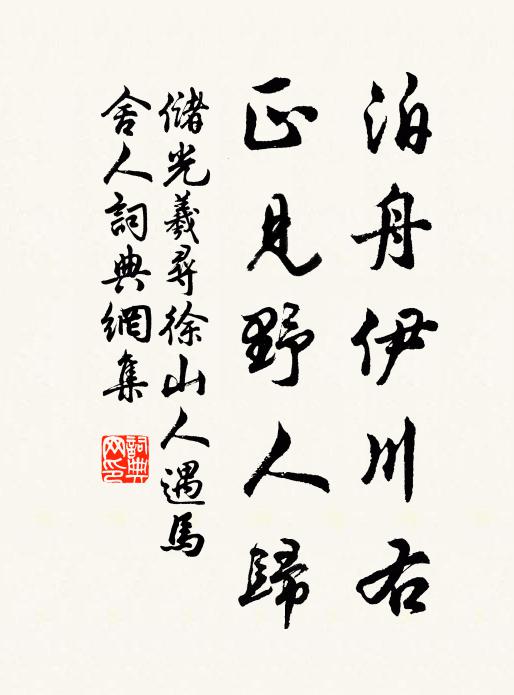 泊舟伊川右
正見野人歸
儲光羲尋徐山人遇馬
舍人詞典網集
詞典网印